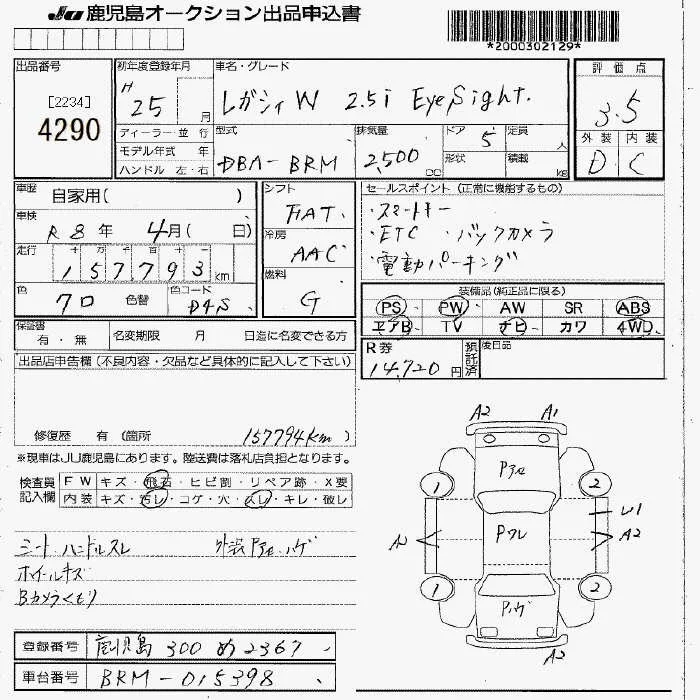 JU 鹿児島オークション出品申込書
*2000302129*
出品番号
[2234]
4290
初年度登録年月
H 25 月
車名・グレード
レガシィ W 2.5i EyeSight.
評価点
3.5
外装 内装
D C
ディーラー・並行
モデル年式 年
ハンドル 左・右
型式
DBA-BRM
排気量
2,500 CC
ドア 5
定員 人
形状
積載 kg
車歴
自家用( )
車検
R 8年 4月( 日)
走行
十 万 千 百 十 一
1 5 7 7 9 3 km
色
クロ 色替
色コード
D4S
シフト
FAT
冷房
AAC
燃料
G
セールスポイント (正常に機能するもの)
・スマートキー
・ETC ・バックカメラ
・電動パーキング
装備品(純正品に限る)
PS PW AW SR ABS
エアB TV ナビ カワ 4WD
保証書
有・無
名変期限 月 日迄に名変できる方
R券
14,720円
預託済
後日品
出品店申告欄(不良内容・欠品など具体的に記入して下さい)
修復歴 有 (箇所 157794km)
※現車はJU鹿児島にあります。陸送費は落札店負担となります。
検査員記入欄
FW キズ・飛石・ヒビ割・リペア跡・X要
内装 キズ・汚レ・コゲ・穴・スレ・キレ・破レ
シート ハンドルスレ
ホイールキズ
Bカメラくもり
A2 A1
1 2
Pワレ
A2
A2
1 2
A2
登録番号 鹿児島 300 め 2367
車台番号 BRM-015398